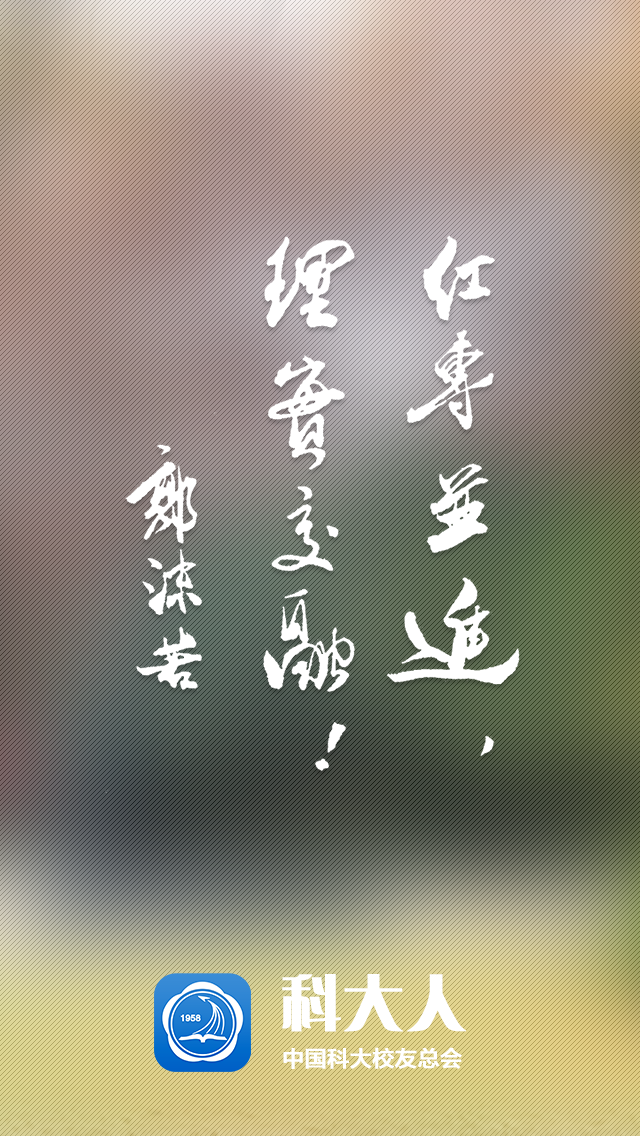 红專並進，
理實交融！
郭沫若
1958
科大人
中国科大校友总会